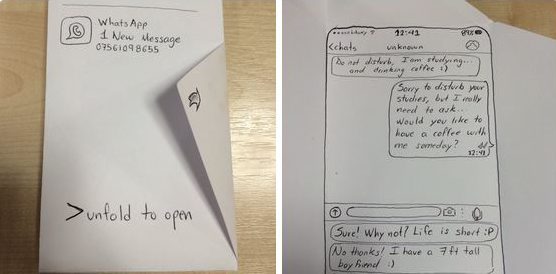 WhatsApp
1 New Message
07561098655
>unfold to open
12:41
<chats
unknown
Do not disturb, I am studying...
and drinking coffee :)
Sorry to disturb your
studies, but I really
need to ask..
Would you like to
have a coffee with
me someday?
12:41
Sure! Why not? Life is short :P
No thanks! I have a 7ft tall
boyfriend :)